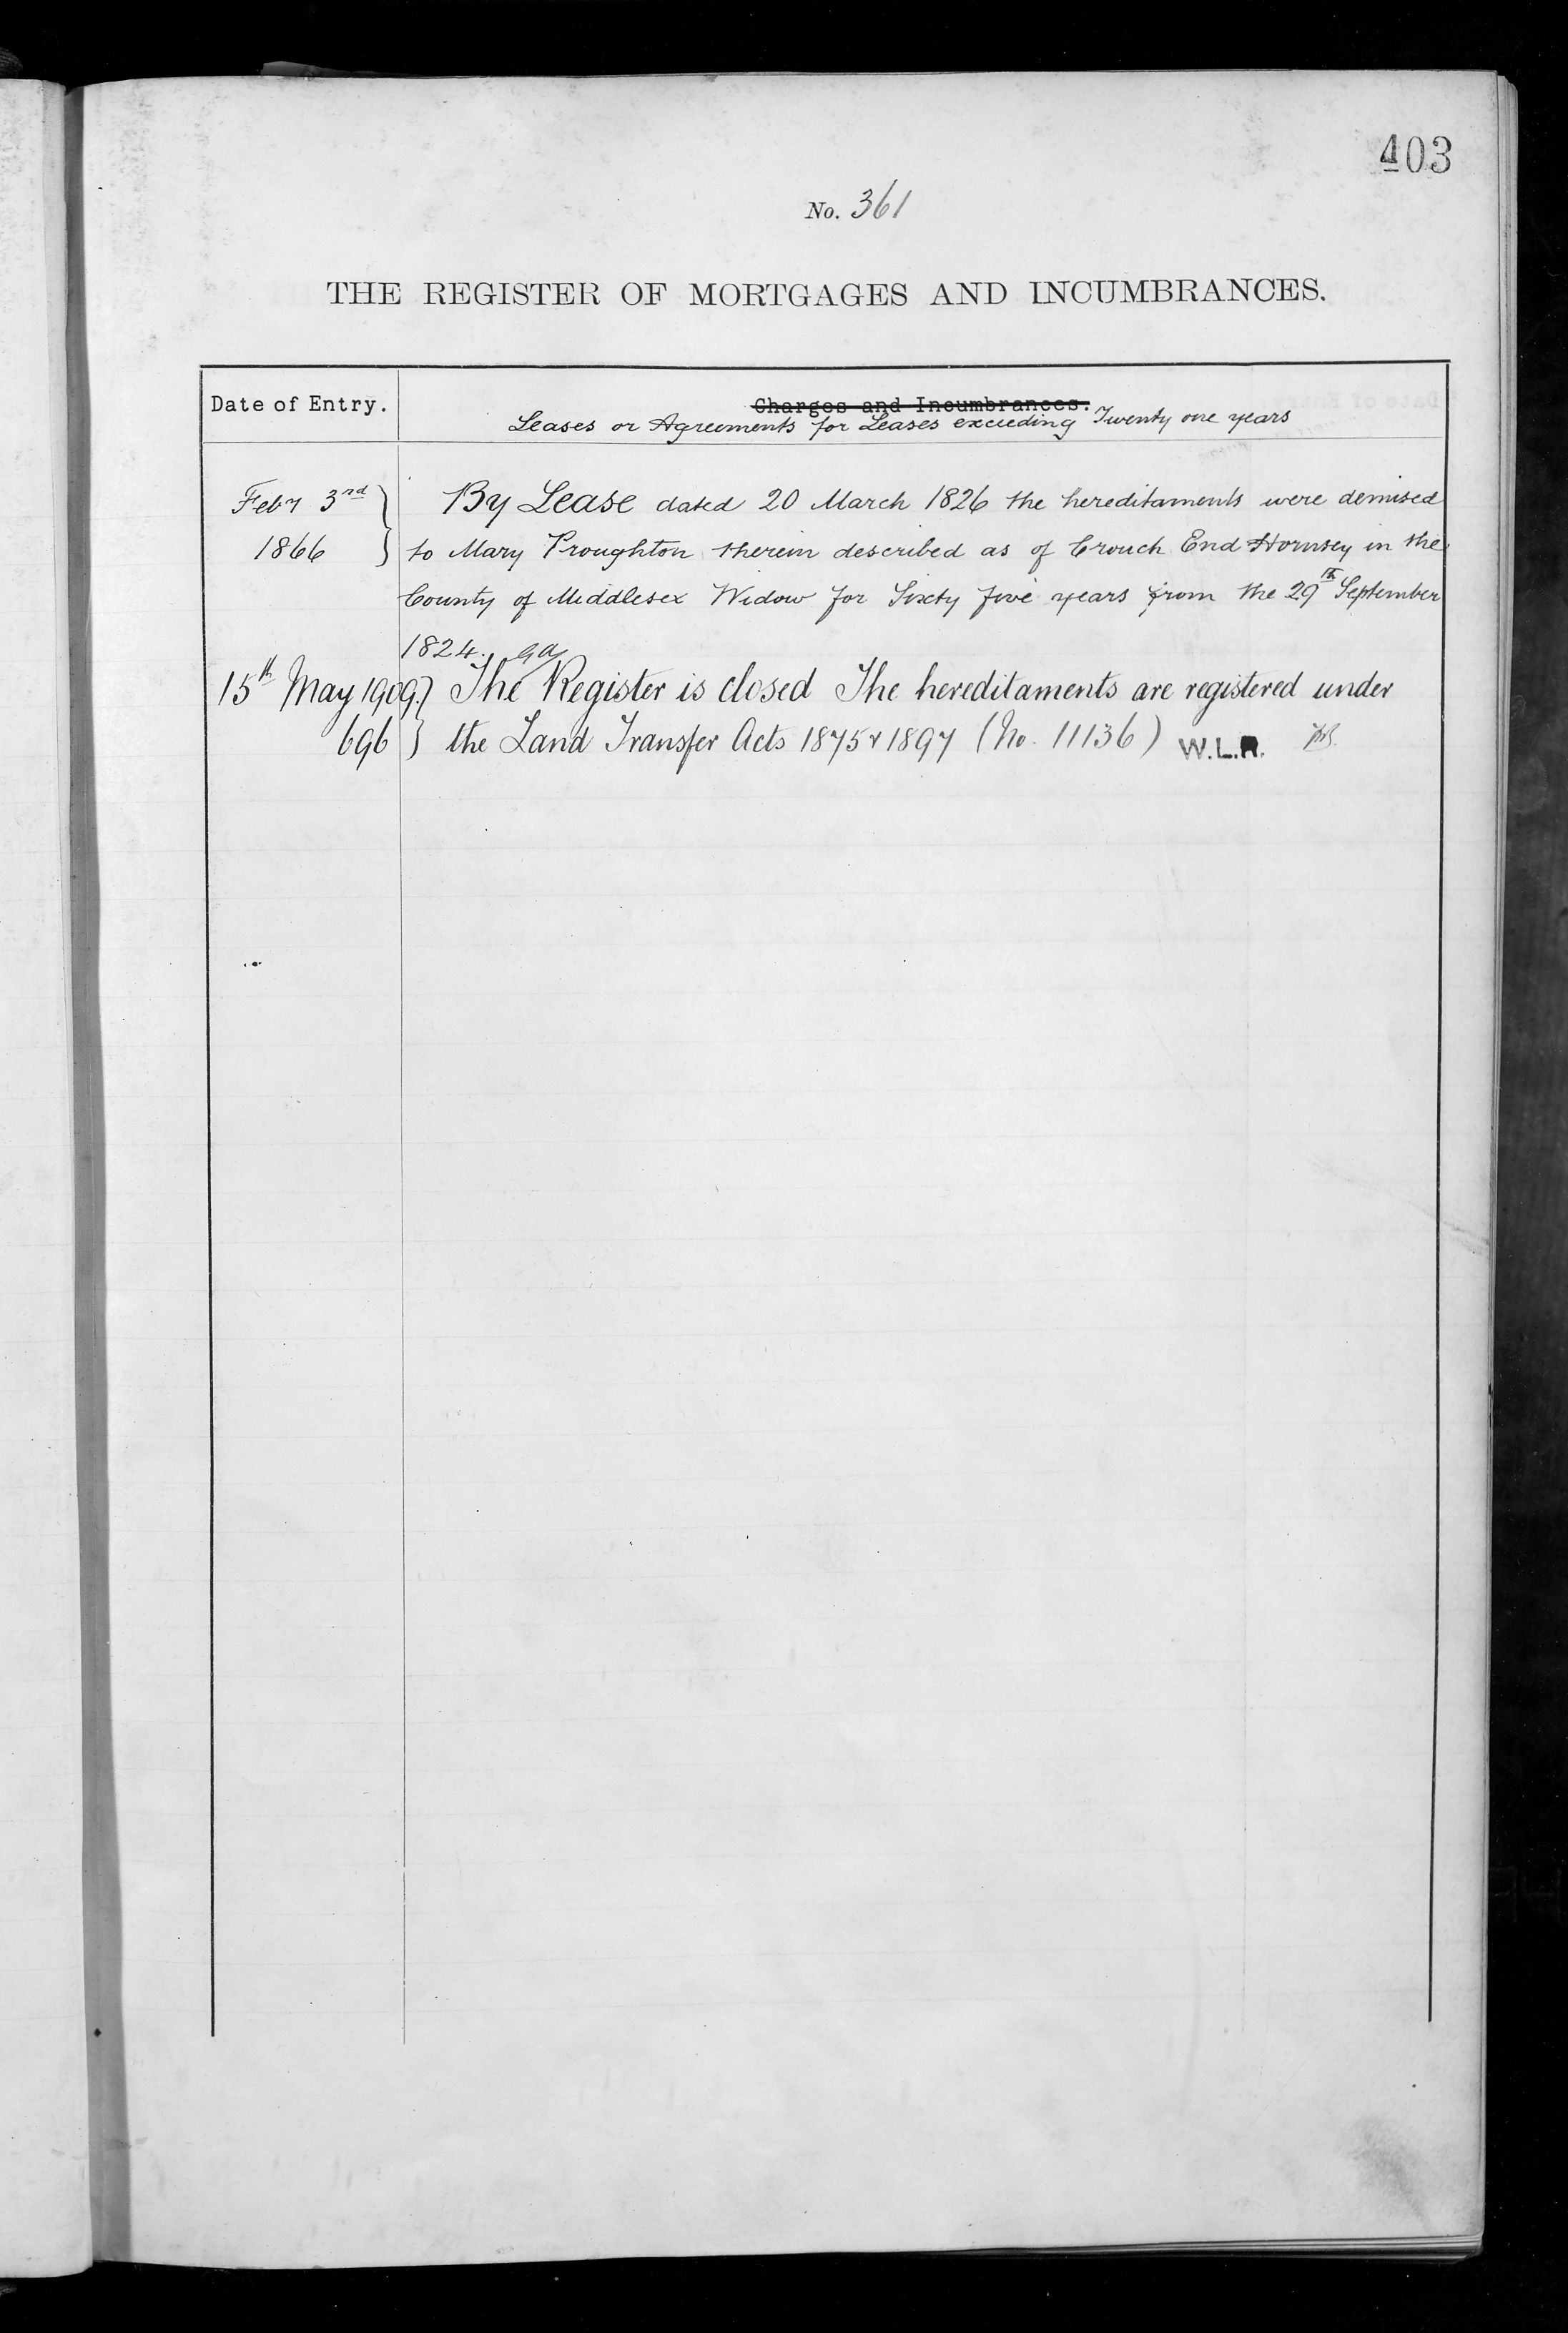 403
No. 361
THE REGISTER OF MORTGAGES AND INCUMBRANCES.
Date of Entry.
Charges and Incumbrances.
Leases or Agreements for Leases exceeding Twenty one years
Feby 3rd
1866
By Lease dated 20 March 1826 the hereditaments were demised
to Mary Proughton therein described as of Crouch End Hornsey in the
County of Middlesex Widow for Sixty five years from the 29th September
1824.
15th May 1909.
696
The Register is closed The hereditaments are registered under
the Land Transfer Acts 1875 & 1897 (No. 11136) W.L.R.